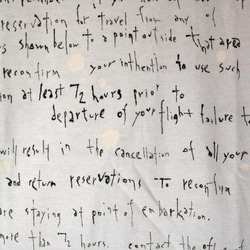 reservation for travel from any of
s shown below to a point outside that area
reconfirm your inthention to use such
ion at least 72 hours prior to
departure of your flight failure t
will result in the cancellation of all your
and return reservations To reconfirm
are staying at point of embarkation.
more than 72 hours. contact the off